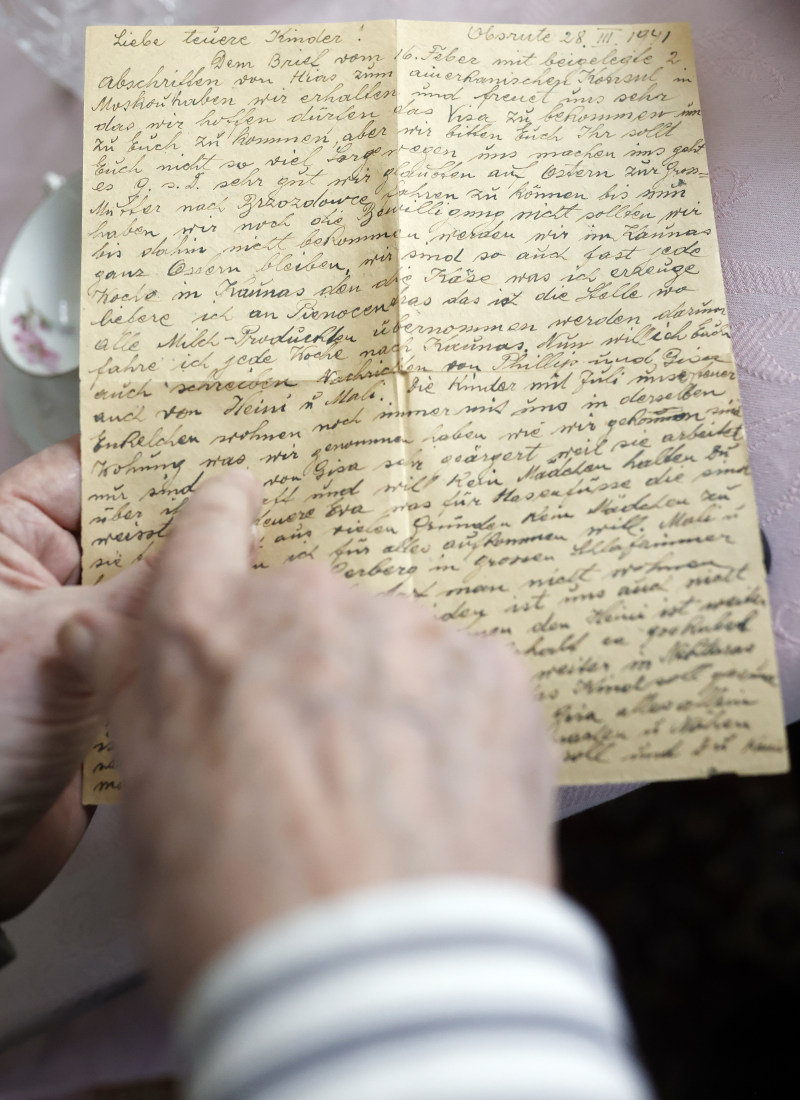 Liebe teuere Kinder! Obsrute 28. III 1941
Dem Brief vom 16. Feber mit beigelegte 2
Abschriften von Hias zum amerikanischen Konsul in
Moskou haben wir erhalten und freuet uns sehr
das wir hoffen dürfen das Visa zu bekommen um
zu Euch zu kommen, aber wir bitten Euch Ihr sollt
Euch nicht so viel Sorge wegen uns machen uns geht
es G. s. D. sehr gut wir glaubten auf Ostern zur Gross=
Mutter nach Brzozdowce fahren zu können bis nun
haben wir noch die Bewilligung nicht sollten wir
bis dahin nicht bekommen, werden wir in Kaunas
ganz Ostern bleiben, wir sind so auch fast jede
Woche in Kaunas den die Käse was ich erzeuge
liefere ich an Pienocentras das ist die Stelle wo
alle Milch-Produckten übernommen werden darum
fahre ich jede Woche nach Kaunas. Nun will ich Euch
auch schreiben Nachrichten von Phillip und Gisa
auch von Heini u Mali. Die Kinder mit Juli unse teuer
Enkelchen wohnen noch immer mit uns in derselben
Wohnung was wir genommen haben wie wir gekommen sind
nur sind von Gisa sehr geärgert weil sie arbeitet
über und will kein Mädchen halten Du
weisst teuere Eva was für Hasenfüsse die sind
sie aus vielen Gründen kein Mädchen zu
ich für alles aufkommen will. Mali u
in grossen Schlafzimmer
man nicht wohnen
ist uns auch nicht
den Heini ist weiter
weiter in
Kind soll
Gisa alles allein
u Nähen
soll und Du